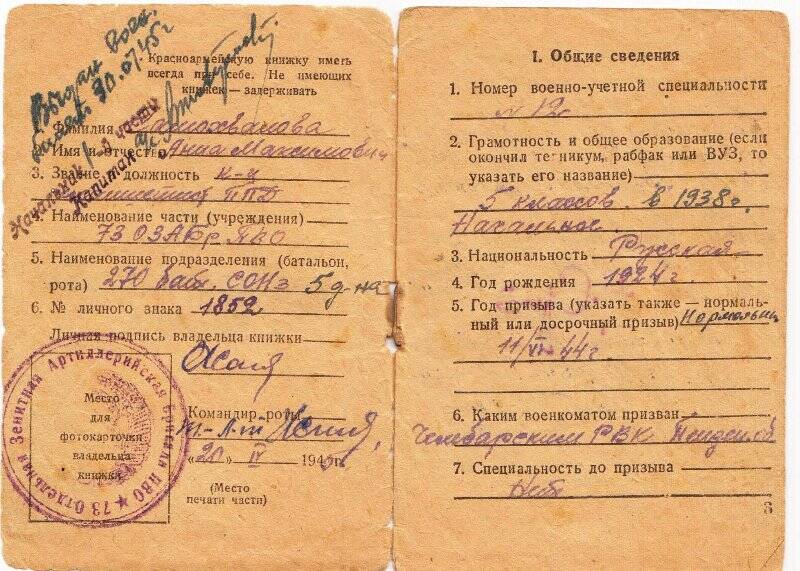 Выдан воен.
билет 30.07.45г
Красноармейскую книжку иметь
всегда при себе. Не имеющих
книжек — задерживать
Начальник части
Капитан
1. Фамилия Самохвалова
2. Имя и отчество Анна Максимович
3. Звание и должность к-ц
ППД
4. Наименование части (учреждения)
73 ОЗАБр ПВО
5. Наименование подразделения (батальон,
рота) 270 бат. СОНз 5 д-на
6. № личного знака 1852
Личная подпись владельца книжки
Место
для
фотокарточки
владельца
книжки
73 Отдельная Зенитная Артиллерийская Бригада ПВО
Командир роты
«20» IV 194
(Место
печати части)
I. Общие сведения
1. Номер военно-учетной специальности
№ 12
2. Грамотность и общее образование (если
окончил техникум, рабфак или ВУЗ, то
указать его название)
5 классов в 1938г.
Начальное
3. Национальность Русская
4. Год рождения 1924г
5. Год призыва (указать также — нормаль-
ный или досрочный призыв) Нормальн
11/VI-44г
6. Каким военкоматом призван
Чембарским РВК
7. Специальность до призыва
Нет
3